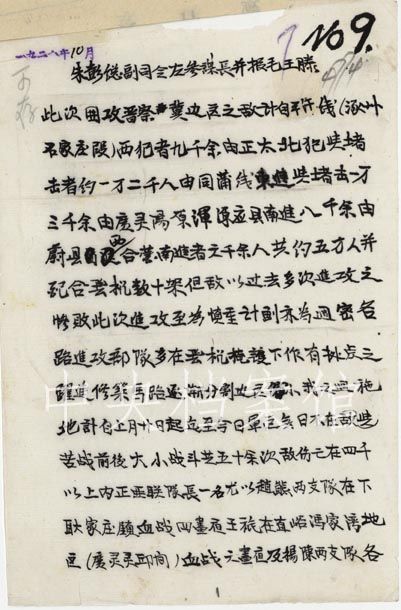 一九三八年10月
No 9.
可存
朱彭总副司令左参谋长并报毛王滕
此次围攻晋察冀边区之敌计自平汉线(涿州
石家庄段)西犯者九千余由正太北犯
击者约一万二千人由同蒲线东进 击一万
三千余由广灵阳原浑源应县南进八千余由
蔚县 西合营南进者 千余人共约五万人并
配合 机数十架但敌以过去多次进攻之
惨败此次进攻至为慎重计划亦为周密各
路进攻部队多在 机掩护下作有据点之
跃进修筑马路逐渐分割边区缩小我之回旋
地计自上月廿日起迄至今日
苦战前后大小战斗共五十余次敌伤亡在四千
以上内正 联队长一名尤以赵熊两支队在下
耿家庄 血战四昼夜王旅在直峪冯家湾地
区(广灵灵邱间)血战 昼夜及杨陈两支队各
中央档案馆